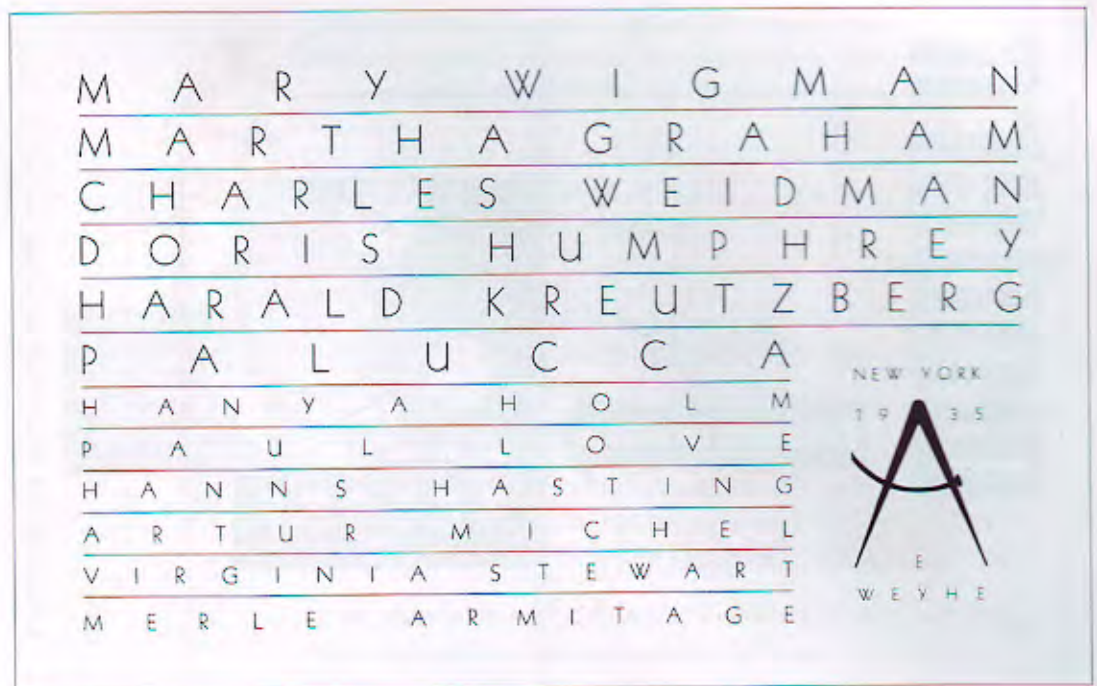 MARY WIGMAN
MARTHA GRAHAM
CHARLES WEIDMAN
DORIS HUMPHREY
HARALD KREUTZBERG
PALUCCA
HANYA HOLM
PAUL LOVE
HANNS HASTING
ARTUR MICHEL
VIRGINIA STEWART
MERLE ARMITAGE
NEW YORK
1935
A
E
WEYHE